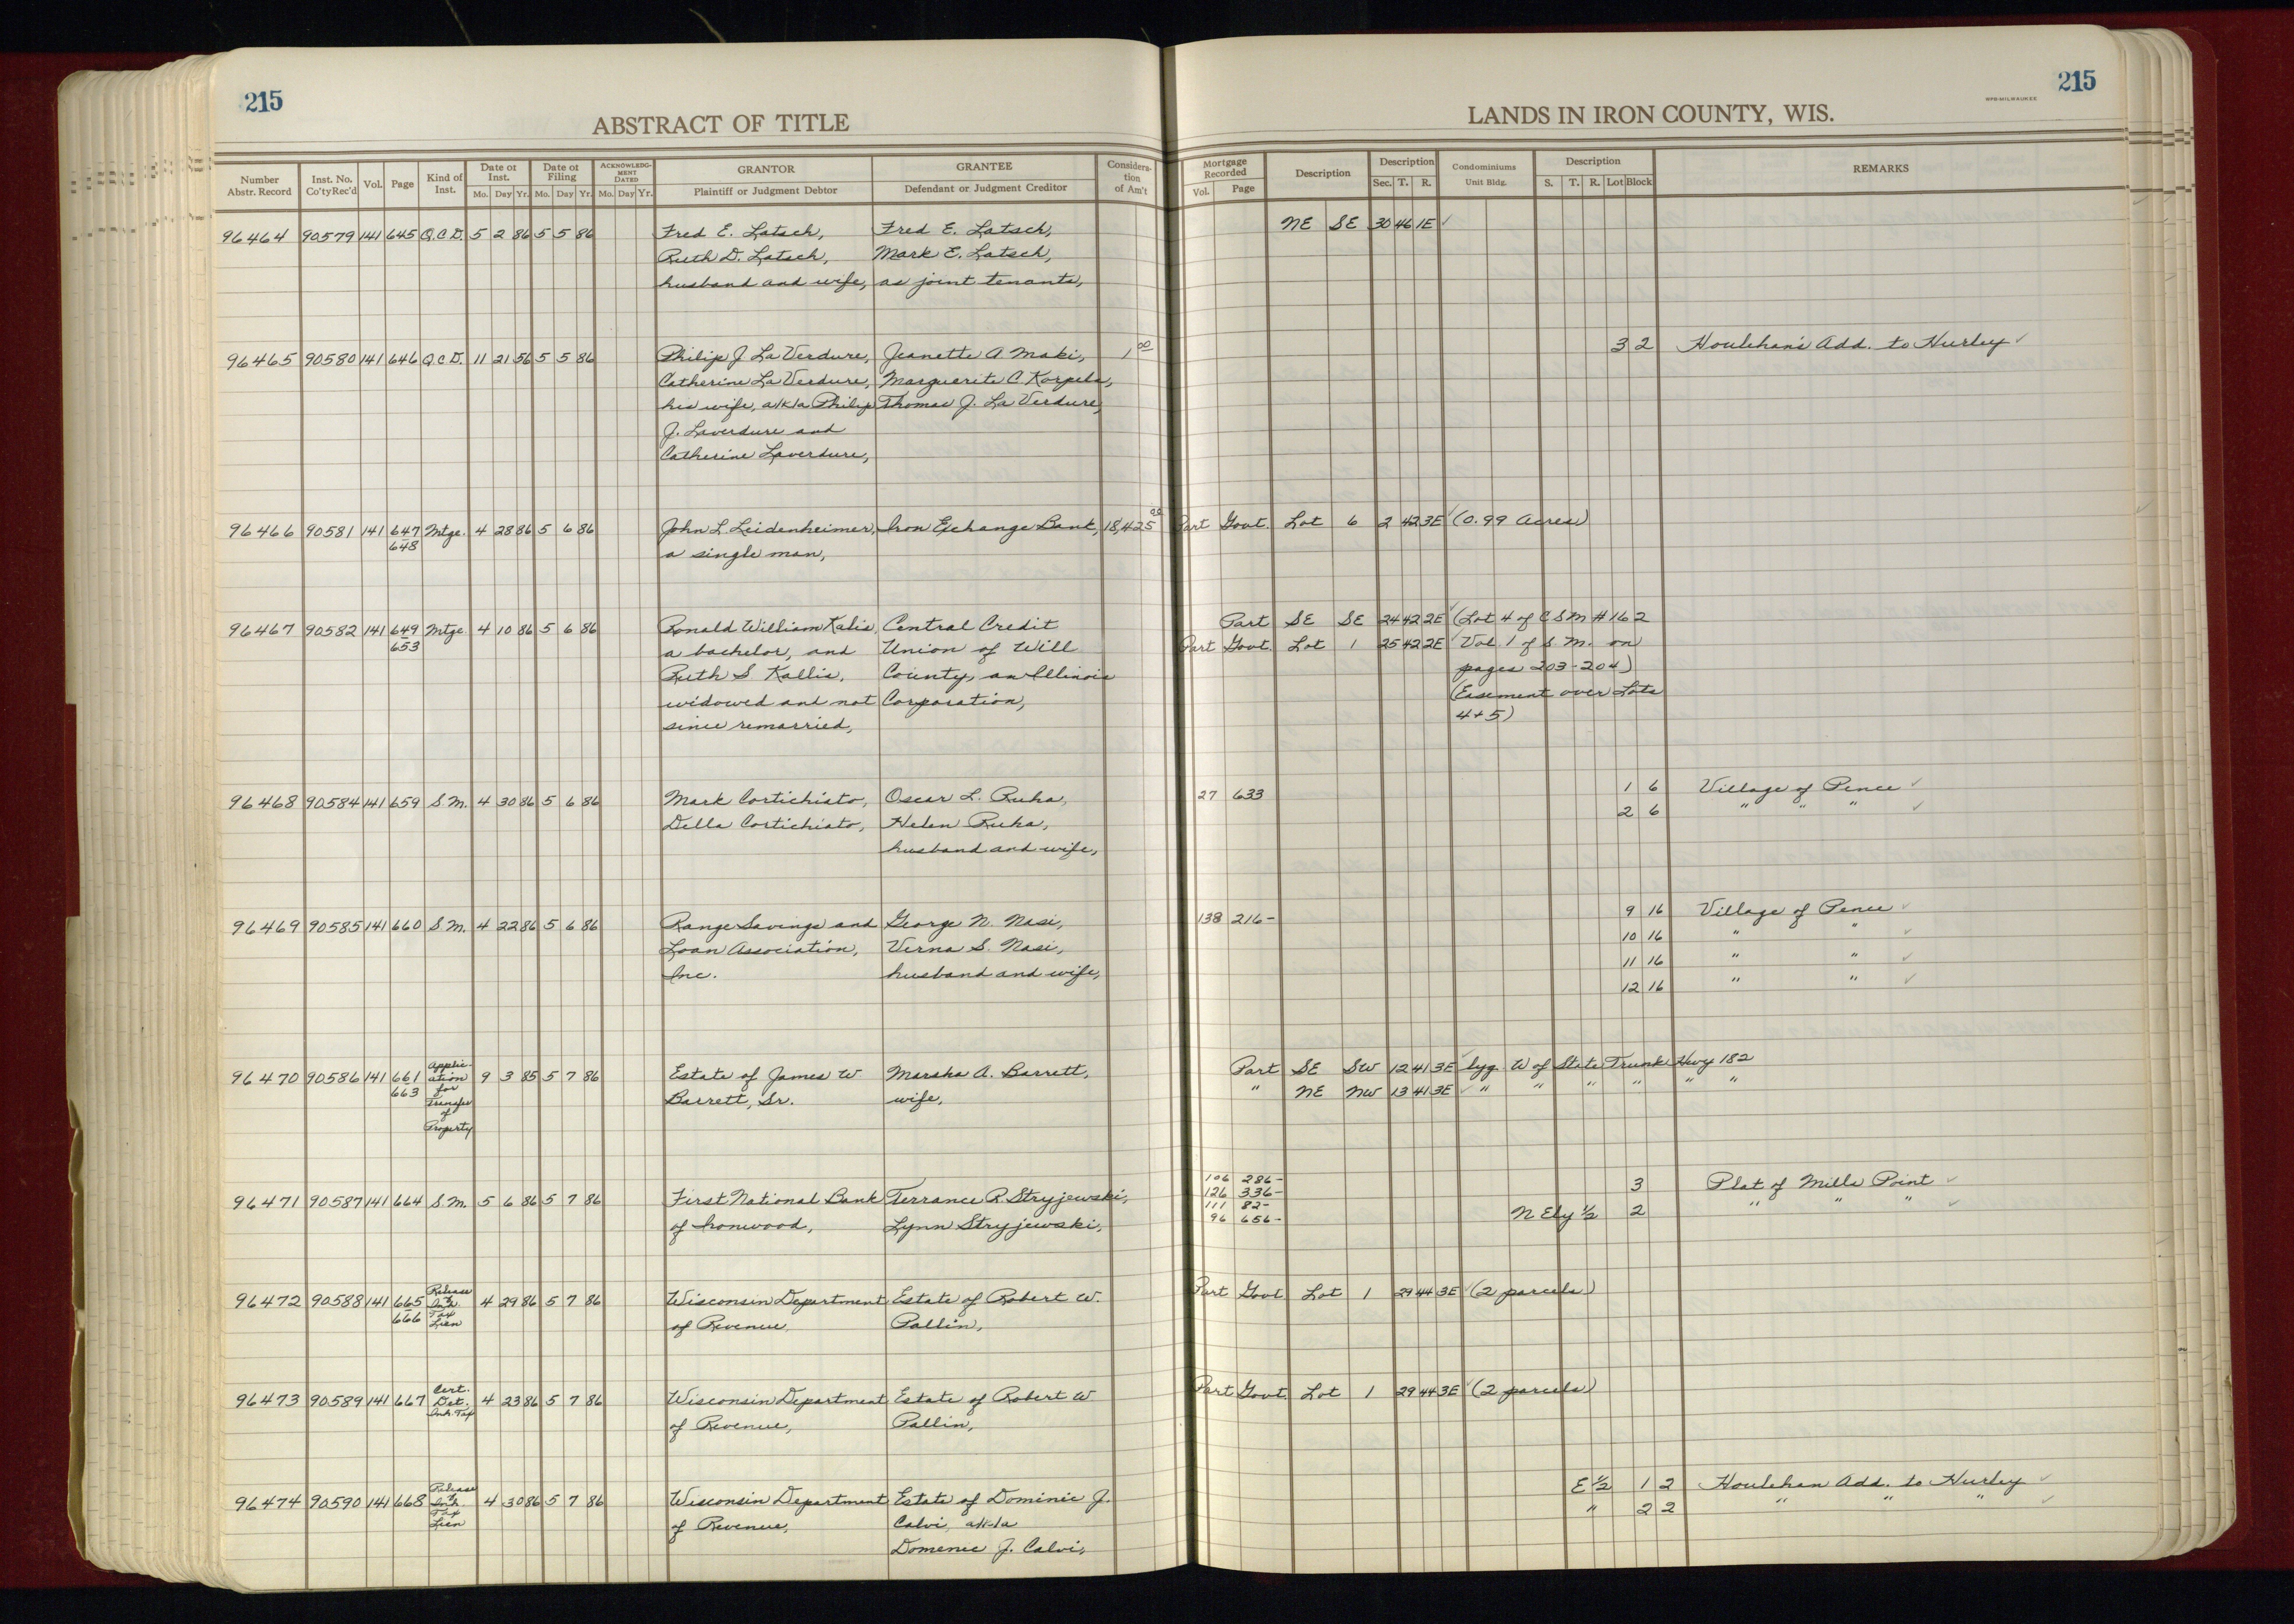 215
ABSTRACT OF TITLE
LANDS IN IRON COUNTY, WIS.
WPR-MILWAUKEE
215
Number Abstr. Record | Inst. No. Co'ty Rec'd | Vol. | Page | Kind of Inst. | Date of Inst. Mo. Day Yr. | Date of Filing Mo. Day Yr. | ACKNOWLEDGMENT DATED Mo. Day Yr. | GRANTOR Plaintiff or Judgment Debtor | GRANTEE Defendant or Judgment Creditor | Consideration of Am't | Mortgage Recorded Vol. Page | Description | Description Sec. T. R. | Condominiums Unit Bldg. | Description S. T. R. Lot Block | REMARKS
96464 90579 141 645 Q.C.D. 5 2 86 5 5 86 Fred E. Latsch, Fred E. Latsch, NE SE 30 46 1E ✓
Ruth D. Latsch, Mark E. Latsch,
husband and wife, as joint tenants,
96465 90580 141 646 Q.C.D. 11 21 56 5 5 86 Philip J La Verdure, Jeanette A Maki, 1 00 3 2 Houlehan's Add. to Hurley ✓
Catherine La Verdure, Marguerite C Korpela,
his wife, a/k/a Philip Thomas J. La Verdure,
J. Laverdure and
Catherine Laverdure,
96466 90581 141 647 Mtge. 4 28 86 5 6 86 John L Leidenheimer, Iron Exchange Bank, 18,425 00 Part Govt. Lot 6 2 42 3E ✓ (0.99 Acres)
648 a single man,
96467 90582 141 649 Mtge 4 10 86 5 6 86 Ronald William Kalis, Central Credit Part SE SE 24 42 2E ✓ (Lot 4 of CSM #162
653 a bachelor, and Union of Will Part Govt. Lot 1 25 42 2E ✓ Vol. 1 of S.M. on
Ruth S Kallis, County, an Illinois pages 203-204)
widowed and not Corporation, (Easement over Lots
since remarried, 4+5)
96468 90584 141 659 S.M. 4 30 86 5 6 86 Mark Cortichiato, Oscar L. Ruha, 27 633 1 6 Village of Pence ✓
Della Cortichiato, Helen Ruha, 2 6 " " " ✓
husband and wife,
96469 90585 141 660 S.M. 4 22 86 5 6 86 Range Savings and George N. Nasi, 138 216- 9 16 Village of Pence ✓
Loan Association, Verna S. Nasi, 10 16 " " ✓
Inc. husband and wife, 11 16 " " ✓
12 16 " " ✓
96470 90586 141 661 Application 9 3 85 5 7 86 Estate of James W. Marsha A. Barrett, Part SE SW 12 41 3E ✓ lyg. W of State Trunk Hwy 182
663 for Barrett, Sr. wife, " NE NW 13 41 3E ✓ " " " " " "
Transfer
of
Property
96471 90587 141 664 S.M. 5 6 86 5 7 86 First National Bank Terrance R. Stryjewski, 106 286- 3 Plat of Mills Point ✓
of Ironwood, Lynn Stryjewski, 126 336- N Ely ½ 2 " " " ✓
111 82-
96 656-
96472 90588 141 665 Release of Inh. Tax Lien 4 29 86 5 7 86 Wisconsin Department Estate of Robert W. Part Govt Lot 1 29 44 3E ✓ (2 parcels)
666 of Revenue, Pallin,
96473 90589 141 667 Cert. Det. Inh. Tax 4 23 86 5 7 86 Wisconsin Department Estate of Robert W Part Govt. Lot 1 29 44 3E ✓ (2 parcels)
of Revenue, Pallin,
96474 90590 141 668 Release of Inh. Tax Lien 4 30 86 5 7 86 Wisconsin Department Estate of Dominic J. E ½ 1 2 Houlehan Add. to Hurley ✓
of Revenue, Calvi, a/k/a " 2 2 " " " ✓
Domenic J. Calvi,